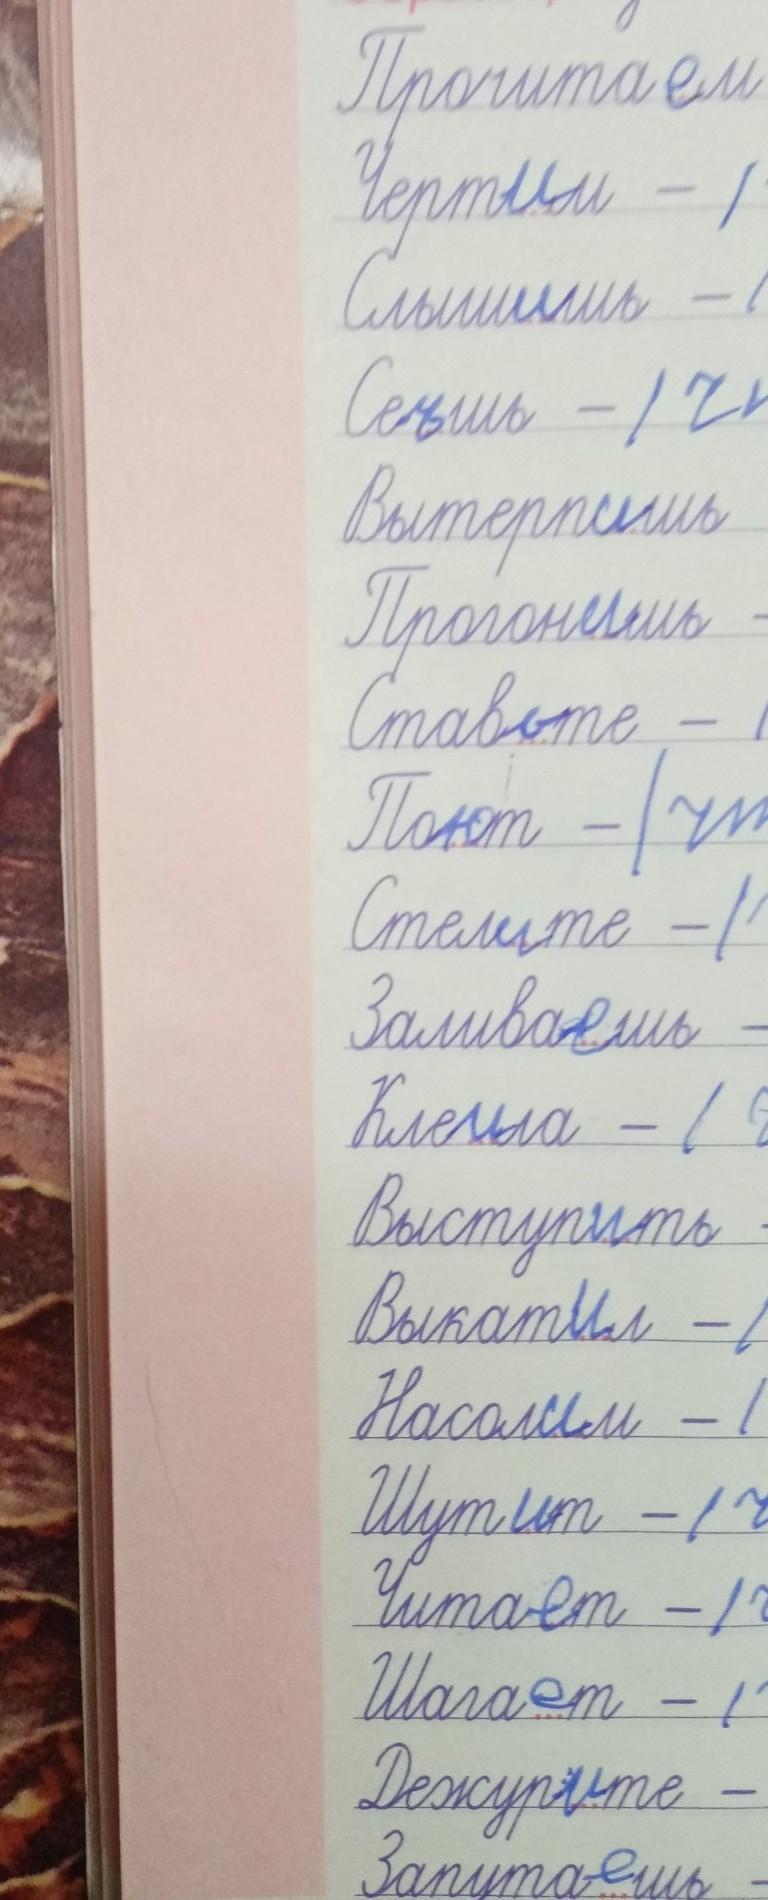 Прочитаем
Чертим –
Слышишь –
Сеешь –
Вытерпишь
Прогонишь –
Ставьте –
Поют –
Стелите –
Заливаешь –
Клеила –
Выступить –
Выкатил –
Насолим –
Шутит –
Читает –
Шагает –
Дежурите –
Запутаешь –